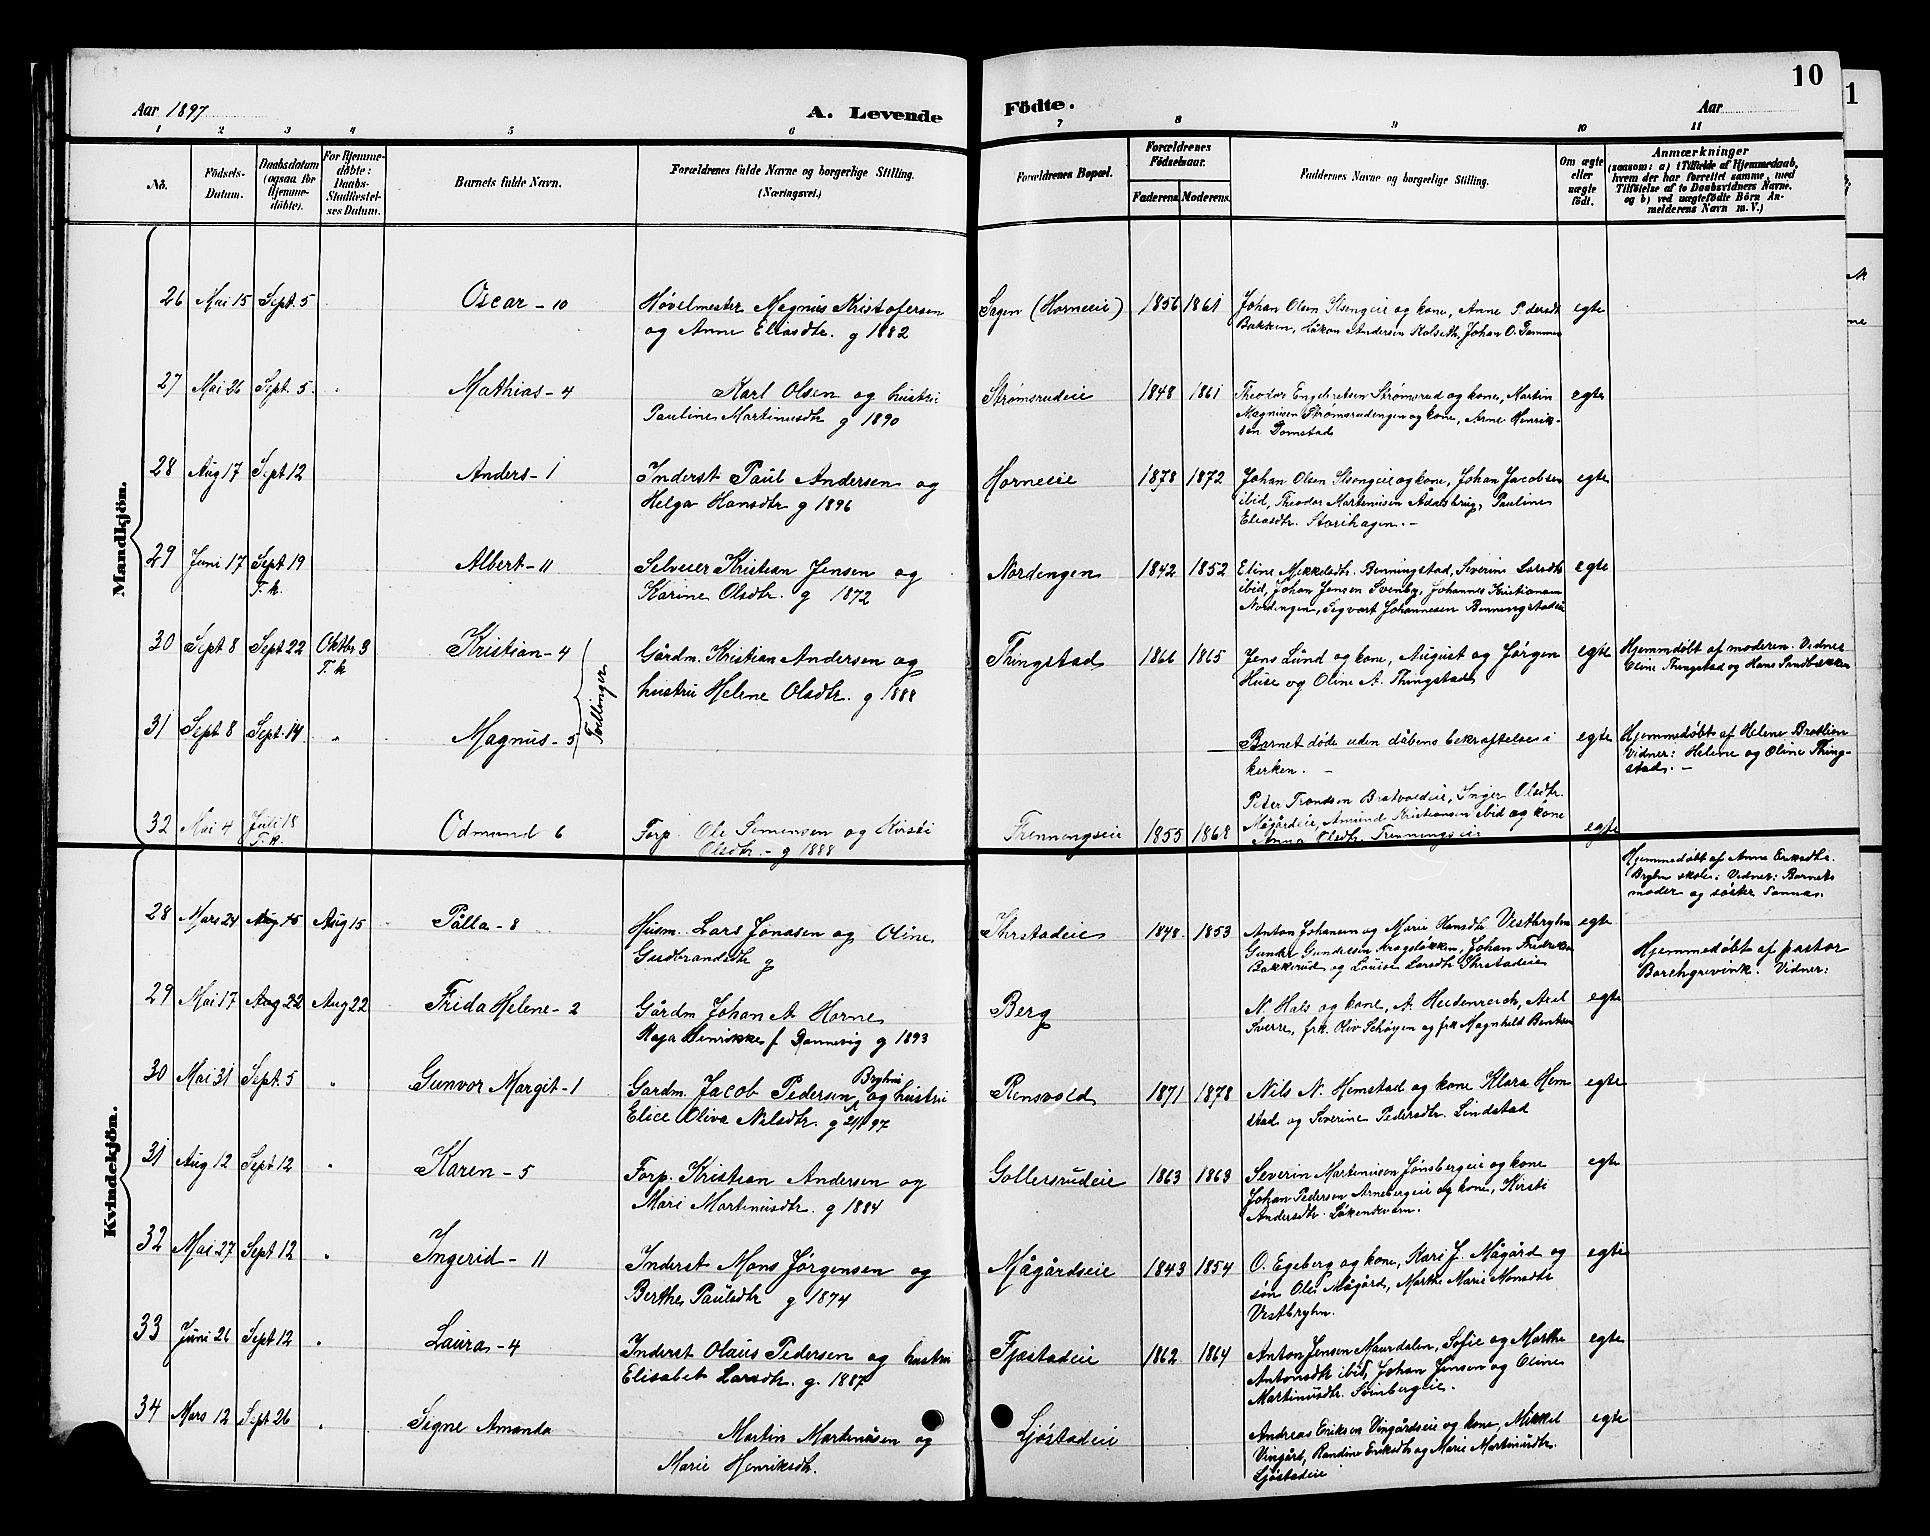 Aar 1897
A. Levende
Födte.
Aar
10
1 2 3 4 5 6 7 8 9 10 11
No.
Födsels-
Datum.
Daabsdatum
(ogsaa for
Hjemme-
döbte).
For Hjemme-
döbte:
Daabs-
Stadfæstel-
ses Datum.
Barnets fulde Navn.
Forældrenes fulde Navne og borgerlige Stilling.
(Næringsvei.)
Forældrenes Bopæl.
Forældrenes
Födselsaar.
Faderens. Moderens.
Faddernes Navne og borgerlige Stilling.
Om ægte
eller
uægte
födt.
Anmærkninger
(saasom: a) i Tilfælde af Hjemmedaab,
hvem der har forrettet samme, med
Tilföielse af to Daabsvidners Navne.
og b) ved uægtefödte Börn An-
melderens Navn m. V.)
Mandkjön.
26 Mai 15 Sept. 5 Oscar - 10 Høvelmester Magnus Kristofersen
og Anne Eliasdtr. g 1882
Sagen (Horneeie) 1856 1861 Johan Olsen Stsengeie og kone, Anne Pedersdt
Bakken, Håkon Andersen Kolseth, Johan O. egte
27 Mai 26 Sept. 5 " Mathias - 4 Karl Olsen og hustru
Pauline Martinusdtr g 1890
Strømsrudeie 1848 1861 Theodor Engebretsen Strømsrud og kone, Martin
Magnisen Strømsrudengen og kone, Arne Henrik-
sen Domstad egte
28 Aug 17 Sept 12 Anders - 1 Inderst Paul Andersen og
Helga Hansdtr g 1896
Horneeie 1878 1872 Johan Olsen Stsengeie og kone, Johan Jacobsen
ibid, Theodor Martinusen Ådalsbrug, Pauline
Eliasdtr. Storihagen. - egte
29 Juni 17 Sept 19
T. k. Albert - 11 Selveier Kristian Jensen og
Karine Olsdtr. g 1872
Nordengen 1842 1852 Eline Mikkelsdtr. Benningstad, Severine Larsdtr
ibid, Johan Jensen Svenby, Johannes Kristiansen
Nordengen, Segvart Johannesen Benningstadeie egte
30 Sept 8 Sept 22 Oktbr 3
T. k Kristian - 4 Gårdm. Kristian Andersen og
hustru Helene Olsdtr. g 1888
Thingstad 1866 1865 Jens Lund og kone, August og Jørgen
Huse og Oline A. Thingstad egte
Hjemmdøbt af moderen. Vidner
Oline Thingstad og Hans Sandbakken
Tvillinger
31 Sept 8 Sept. 14 " Magnus - 5
Barnet døde uden dåbens bekræftelse i
kerken. - egte
Hjemmedøbt af Helene Bratlien
Vidner: Helene og Oline Thing-
stad. -
32 Mai 4 Juli 18
T. k. Odmund 6 Forp. Ole Semensen og Kirsti
Olsdtr. - g 1888
Frenningseie 1855 1868 Peter Trondsen Bratvoldeie, Inger Olsdtr.
Mågårdeie, Amund Kristiansen ibid og kone
Anna Olsdtr. Frenningseie egte
Kvindekjön.
28 Mars 24 Aug 15 Aug 15 Pålla - 8 Husm. Lars Jonasen og Oline
Gudbrandsdtr g
Ihrstadeie 1848. 1853 Anton Johansen og Marie Hansdtr Vestbryhn
Gunder Gundersen Kragsløkken, Johan Fredriksen
Bakkerud og Louise Larsdtr Ihrstadeie egte
Hjemmedøbt af Anna Eriksdtr.
Bryhn skole: Vidner: Barnets
moder og søster Janna.
29 Mai 17 Aug 22 Aug 22 Frida Helene - 2 Gårdm Johan A Horne
Kaja Henrikke f. Rannevig g 1893
Berg
N. Hals og kone, A. Heidenreich, Axel
Sverre, frk. Oliv Schøyen og frk Magnhild Bentsen egte
Hjemmedøbt af pastor
Borchgrevink. Vidner:
30 Mai 31 Sept. 5 " Gunvor Margit - 1 Gardm. Jacob Pedersen Bryhni og hustru
Elice Oliva Nilsdtr. g 2/1 97
Rensvold 1871 1878 Nils N. Hemstad og kone Klara Hem
stad og Severine Pedersdtr. Lindstad egte
31 Aug 12 Sept 12 " Karen - 5 Forp. Kristian Andersen og
Mari Martinusdtr. g 1884
Gollersrudeie 1863 1863 Severin Martinusen Jønsbergeie og kone
Johan Pedersen Arnebergeie og kone, Kirsti
Andersdtr. Løkendevarn. egte
32 Mai 27 Sept 12 " Ingerid - 11 Inderst Mons Jørgensen og
Berthe Paulsdtr g 1874
Mågårdseie 1843 1854 O. Egeberg og kone, Kari J. Mågård og
søn Ole Mågård, Marthe Marie Monsdtr
Vestbryhn. egte
33 Juni 26 Sept 12 " Laura - 4 Inderst Olaus Pedersen og hustru
Elisabet Larsdtr. g. 1887
Fjæstadeie 1862 1864 Anton Jensen Maurdalen, Sofie og Marthe
Antonsdtr ibid, Johan Jensen og Oline
Martinusdtr. Svinbergeie. egte
34 Mars 12 Sept 26 " Segne Amanda Martin Martinusen og
Marie Henriksdtr.
Ljøstadeie
Andreas Eriksen Vingårdseie og kone, Mikkel
Vingård, Randine Eriksdtr og Marie Martinusdtr.
Ljøstadeie egte